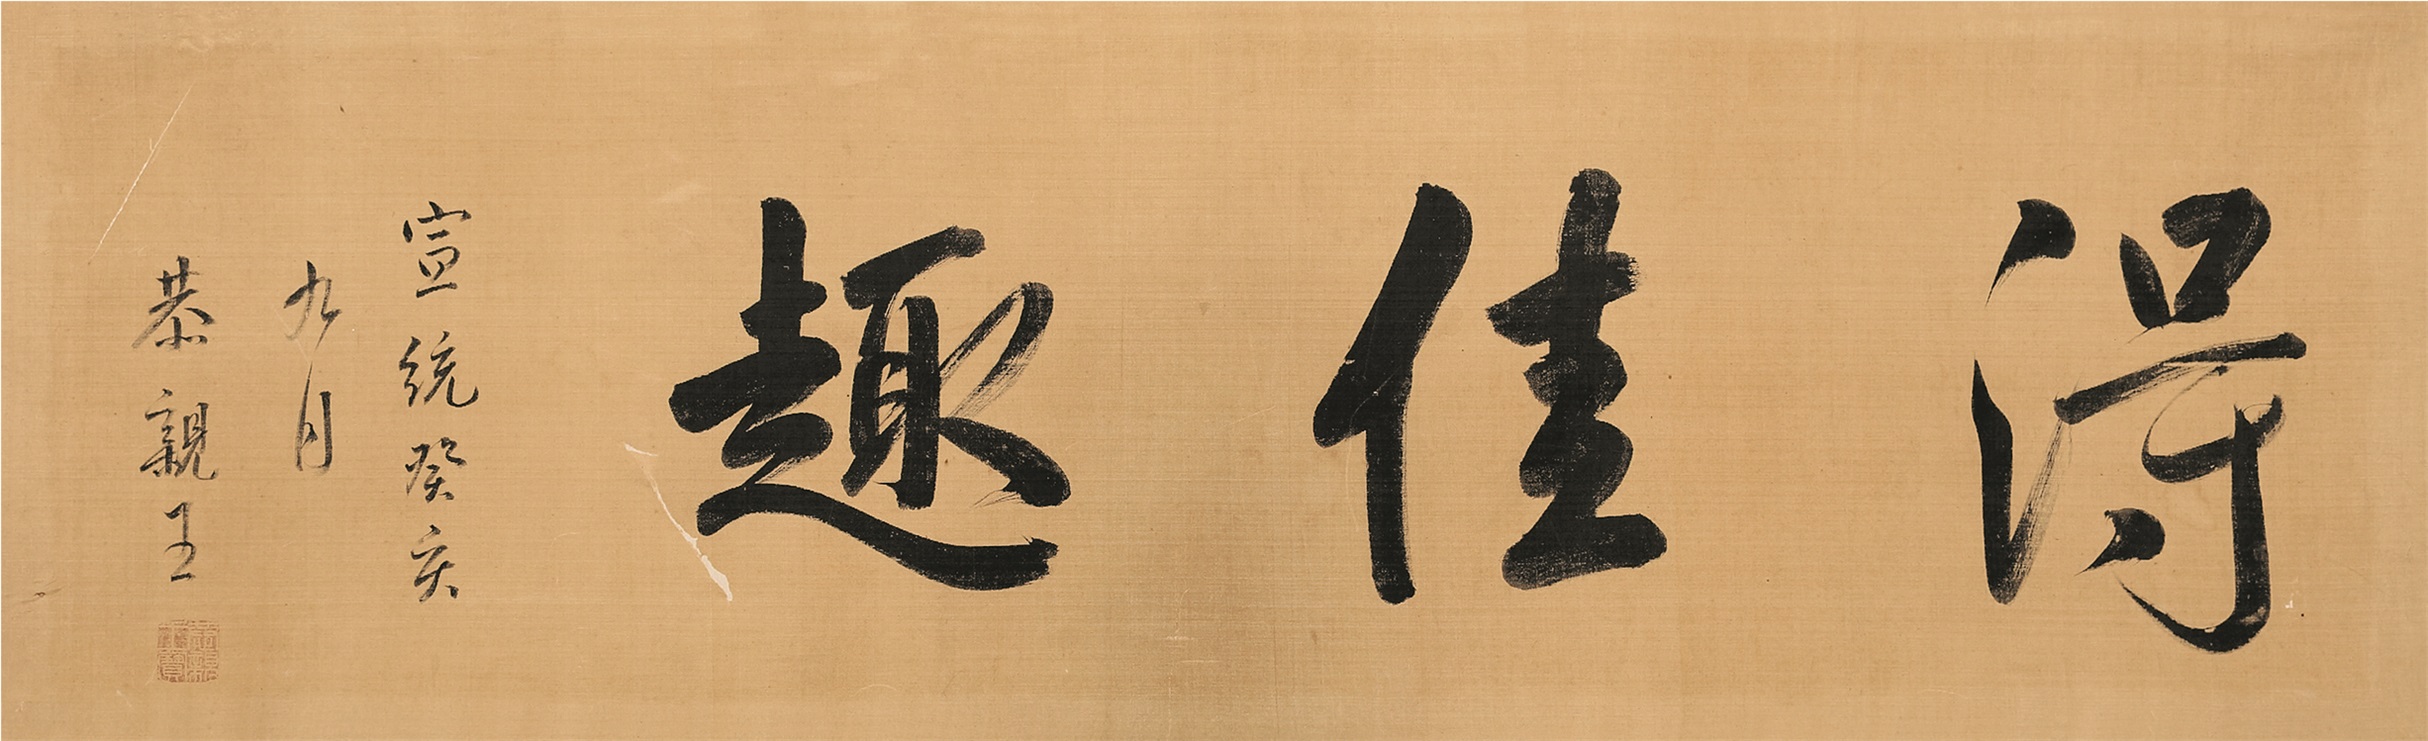 得佳趣
宣統癸亥
九月
恭親王